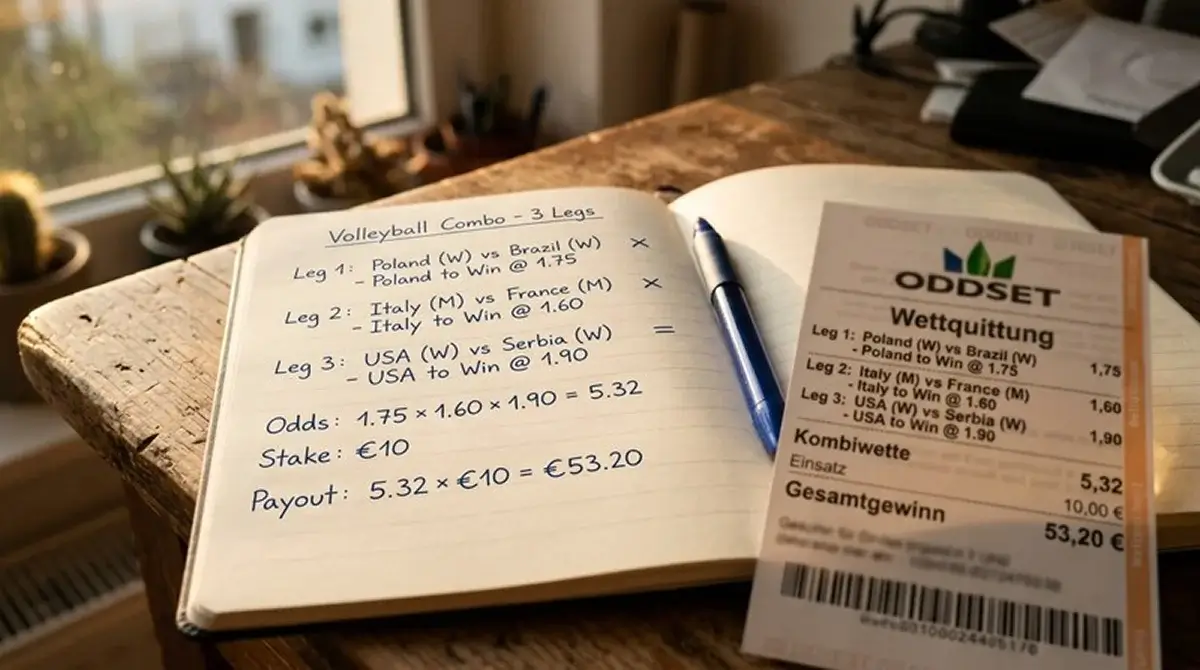 Volleyball Combo - 3 Legs
Leg 1: Poland (W) vs Brazil (W) ×
- Poland to Win @ 1.75
Leg 2: Italy (M) vs France (M) ×
- Italy to Win @ 1.60
Leg 3: USA (W) vs Serbia (W) =
- USA to Win @ 1.90
Odds: 1.75 × 1.60 × 1.90 = 5.32
Stake: €10
Payout: 5.32 × €10 = €53.20
ODDSET
Wettquittung
Leg 1: Poland (W) vs Brazil (W)
- Poland to Win @ 1.75 1,75
Leg 2: Italy (M) vs France (M)
- Italy to Win @ 1.60 1,60
Leg 3: USA (W) vs Serbia (W)
- USA to Win @ 1.90 1,90
Kombiwette 5,32
Einsatz 10,00 €
Gesamtgewinn 53,20 €